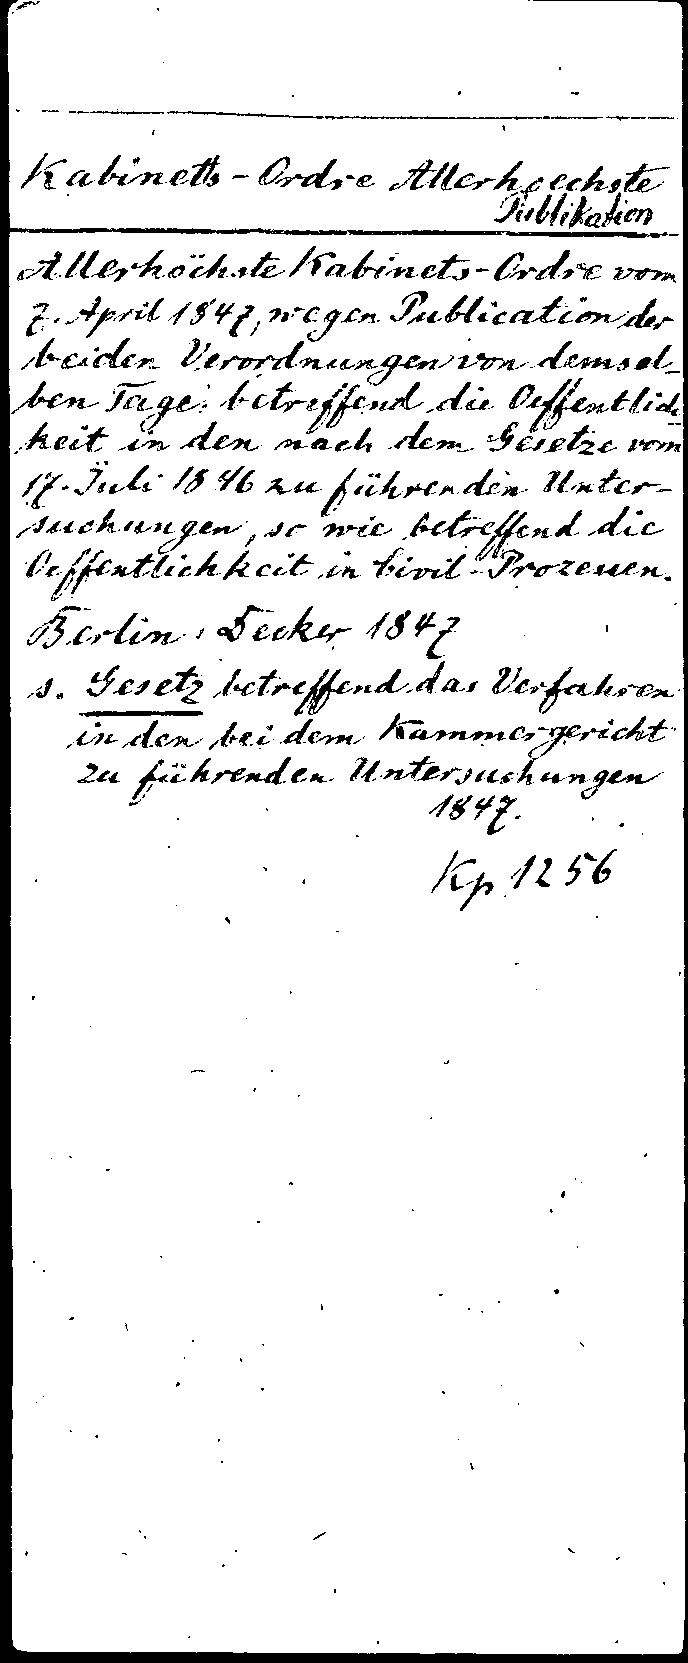 Kabinetts-Ordre Allerhoechste
Publikation
Allerhöchste Kabinets-Ordre vom
7. April 1847, wegen Publication der
beiden Verordnungen von demsel-
ben Tage: betreffend die Oeffentlich-
keit in den nach dem Gesetze vom
17. Juli 1846 zu führenden Unter-
suchungen, so wie betreffend die
Oeffentlichkeit in Civil-Prozessen.
Berlin: Decker 1847
s. Gesetz betreffend das Verfahren
in den bei dem Kammergericht
zu führenden Untersuchungen
1847.
Kp 1256